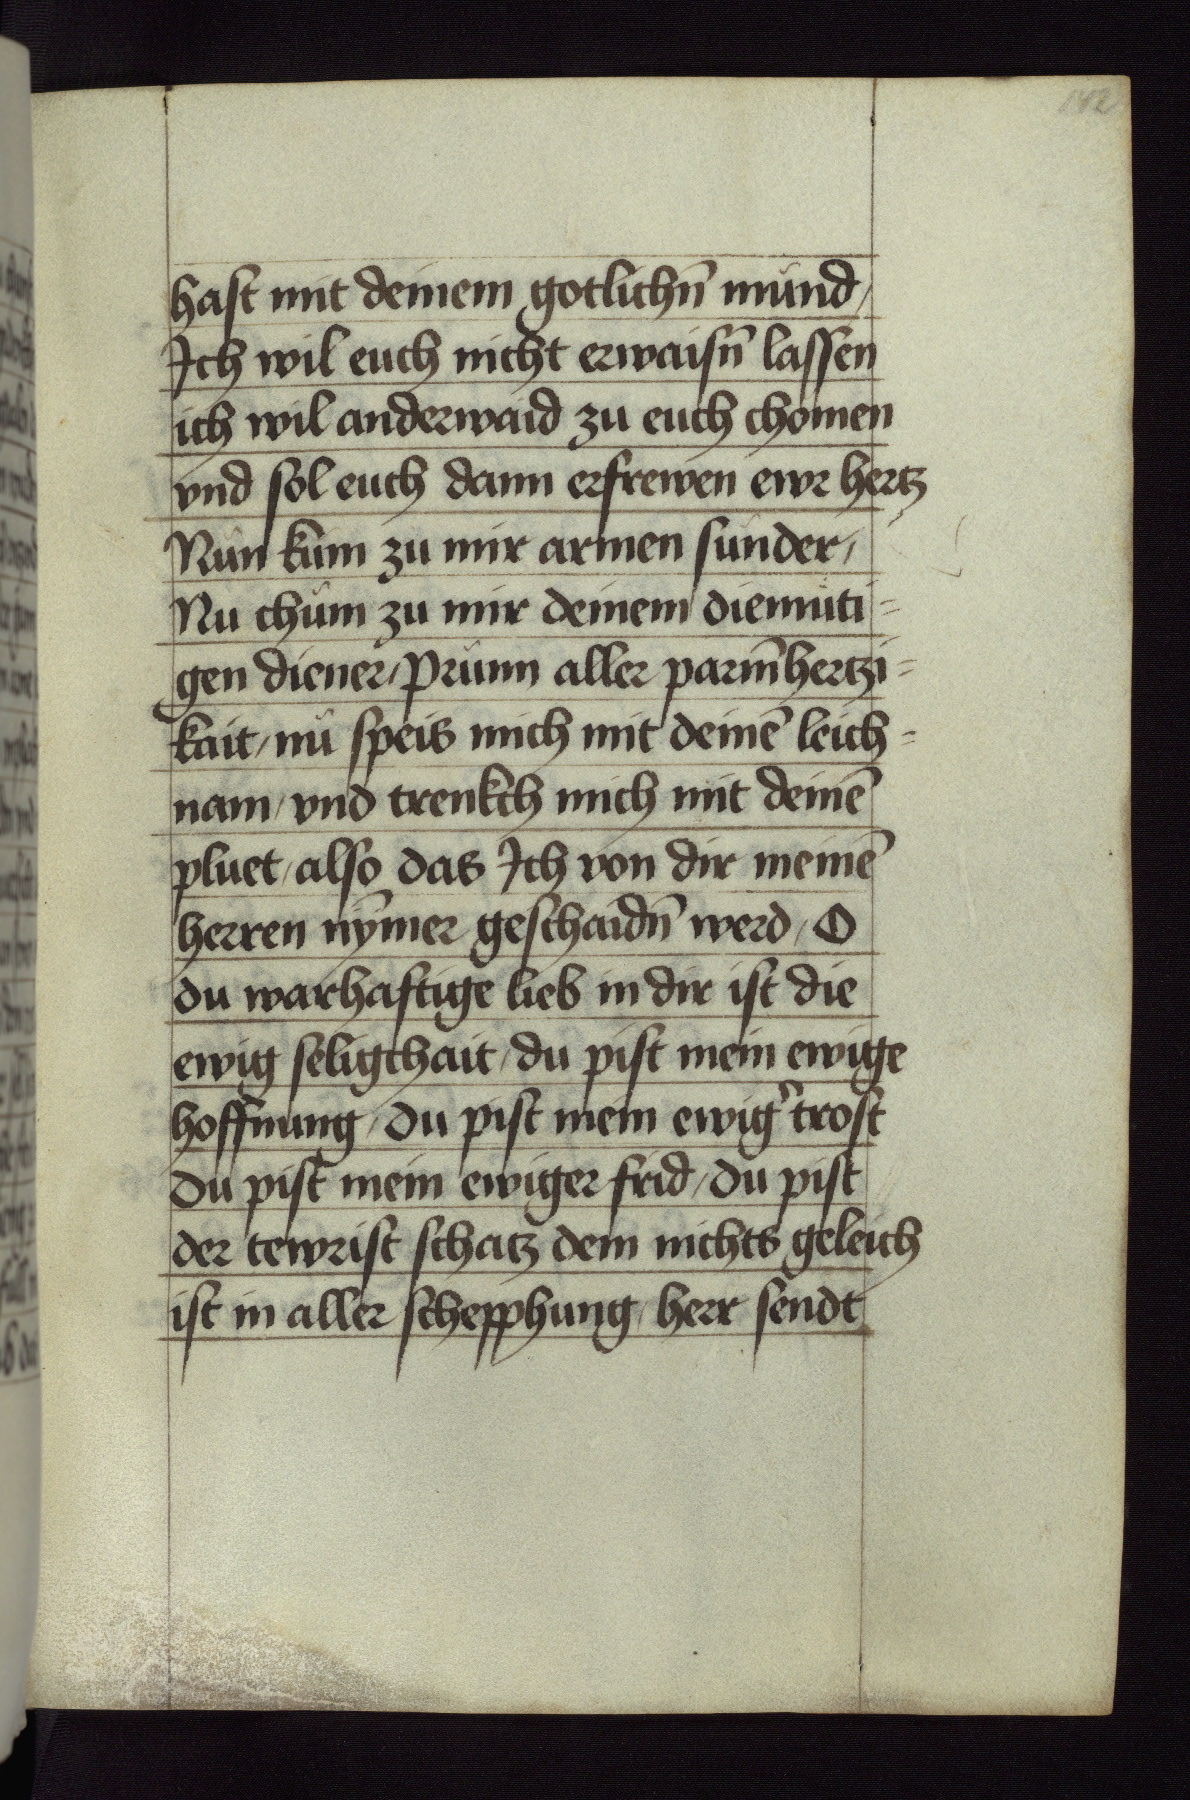 142
hast mit deinem gotlichn̄ mund /
Ich wil euch nicht erwaisn̄ lassen
ich wil anderwaid zu euch chomen
vnd sol euch dann erfrewen ewr hertz
Nun kum zu mir armen sunder /
Nu chům zu mir deinem diemůti=
gen diener / Prunn aller parm̄hertzi=
kait / nů speis mich mit deinē leich=
nam / vnd trenkch mich mit deinē
pluet / also das Ich von dir meinē
herren nȳmer geschaidn̄ werd / O
du warhaftige lieb in dir ist die
ewig seligchait / du pist mein ewige
hoffnung / du pist mein ewig̉ trost
du pist mein ewiger frid / du pist
der tewrist schatz dem nichts geleich
ist in aller schepphung / herr sendt